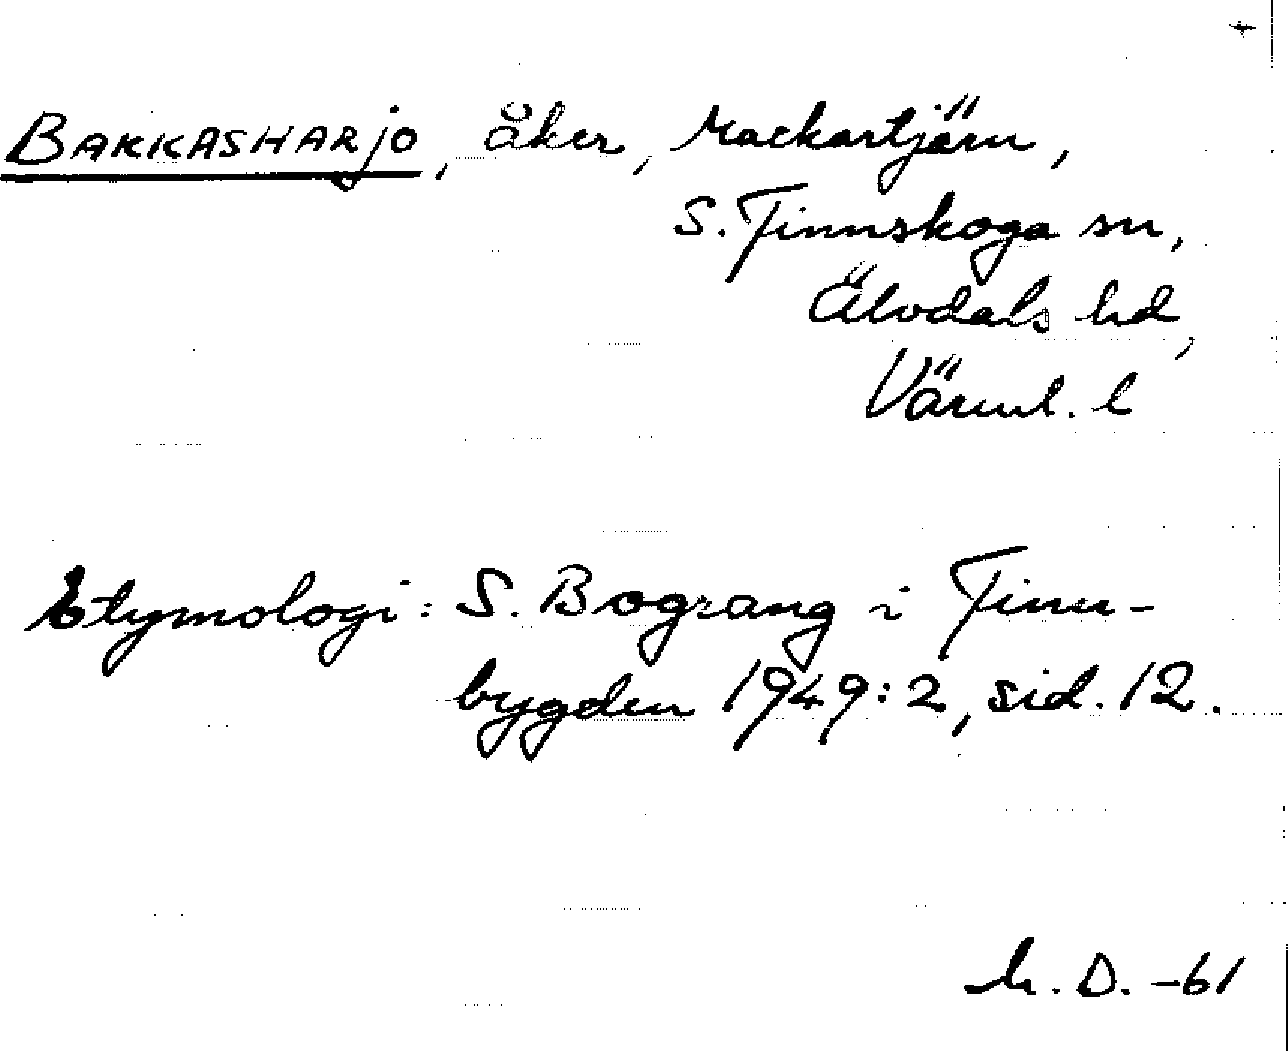 BAKKASHARJO, åker, Mackartjärn,
S. Finnskoga sn,
Älvdals hd,
Värml. l
Etymologi: S. Bograng i Finn-
bygden 1949:2, sid. 12.
h. D. -61